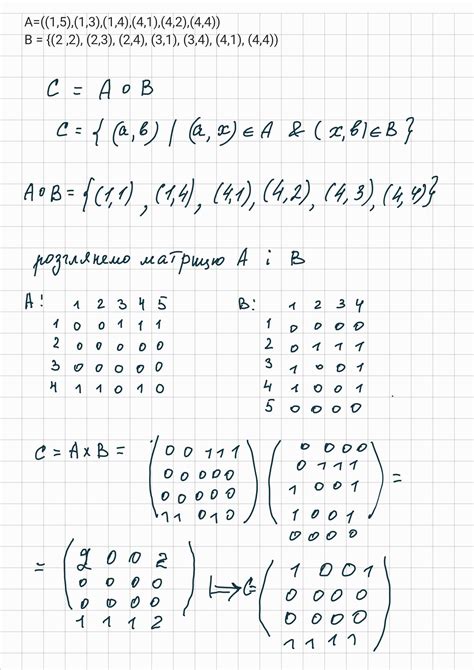 A=((1,5),(1,3),(1,4),(4,1),(4,2),(4,4))
B = {(2 ,2), (2,3), (2,4), (3,1), (3,4), (4,1), (4,4))
C = A ∘ B
C = { (a, b) | (a, x) ∈ A & (x, b) ∈ B }
A∘B = {(1,1), (1,4), (4,1), (4,2), (4,3), (4,4)}
розглянемо матрицю A і B
A: 1 2 3 4 5
1 0 0 1 1 1
2 0 0 0 0 0
3 0 0 0 0 0
4 1 1 0 1 0
B: 1 2 3 4
1 0 0 0 0
2 0 1 1 1
3 1 0 0 1
4 1 0 0 1
5 0 0 0 0
C = A x B =
0 0 1 1 1
0 0 0 0 0
0 0 0 0 0
1 1 0 1 0
0 0 0 0
0 1 1 1
1 0 0 1
1 0 0 1
0 0 0 0
=
=
2 0 0 2
0 0 0 0
0 0 0 0
1 1 1 2
|⇒ C =
1 0 0 1
0 0 0 0
0 0 0 0
1 1 1 1